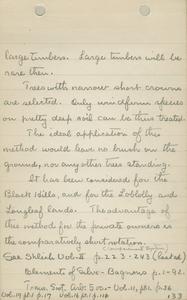 large timbers. Large timbers will be
rare then.
Trees with narrow short crowns
are selected. Only windfirm species
on pretty deep soil can be thus treated.
The ideal application of this
method would leave no brush on the
ground, nor any other trees standing.
It has been considered for the
Black Hills, and for the Loblolly and
Longleaf lands. The advantage of
this method for the private owners is
the comparatively short rotation.
See Schlich Vol. II p. 223-243
Elements of Silvc. - Bagneris p. 1-92.
Trans. Scot. Arb. Soc. - Vol. 11, p81 p. 36
Vol. 14 p81 p. 17 Vol. 16 p81 p. 116